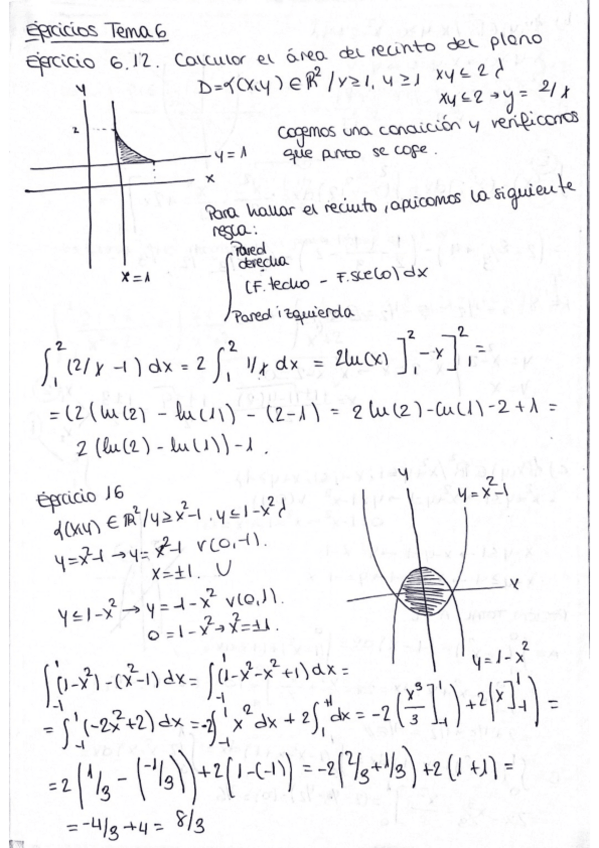 Ejercicios Tema 6
Ejercicio 6.12. Calcular el área del recinto del plano
D={(x,y) ∈ ℝ² / x≥1, y≥1 xy≤2}
xy≤2 → y = 2/x
Cogemos una condición y verificamos
que punto se coge.
y
2
y = 1
x
x = 1
Para hallar el recinto, aplicamos la siguiente
regla:
Pared
derecha
∫ (F. techo - F. suelo) dx
Pared izquierda
∫₁² (2/x - 1) dx = 2 ∫₁² 1/x dx = 2ln(x) ]₁² - x ]₁² =
= (2(ln(2) - ln(1)) - (2-1) = 2 ln(2) - ln(1) - 2 + 1 =
2 (ln(2) - ln(1)) - 1.
Ejercicio 16
{(x,y) ∈ ℝ² / y ≥ x²-1, y ≤ 1-x²}
y = x²-1 → y = x²-1 v(0,-1).
x = ±1. ∪
y ≤ 1-x² → y = 1-x² v(0,1).
0 = 1-x² → x² = ±1.
y
y = x²-1
x
y = 1-x²
∫₋₁¹ (1-x²) - (x²-1) dx = ∫₋₁¹ (1-x²-x²+1) dx =
= ∫₋₁¹ (-2x²+2) dx = -2 ∫₋₁¹ x² dx + 2 ∫ dx = -2 (x³/3 ]₋₁¹) + 2 (x ]₋₁¹) =
= 2 (1/3 - (-1/3)) + 2 (1-(-1)) = -2 (2/3 + 1/3) + 2 (1+1) =
= -4/3 + 4 = 8/3